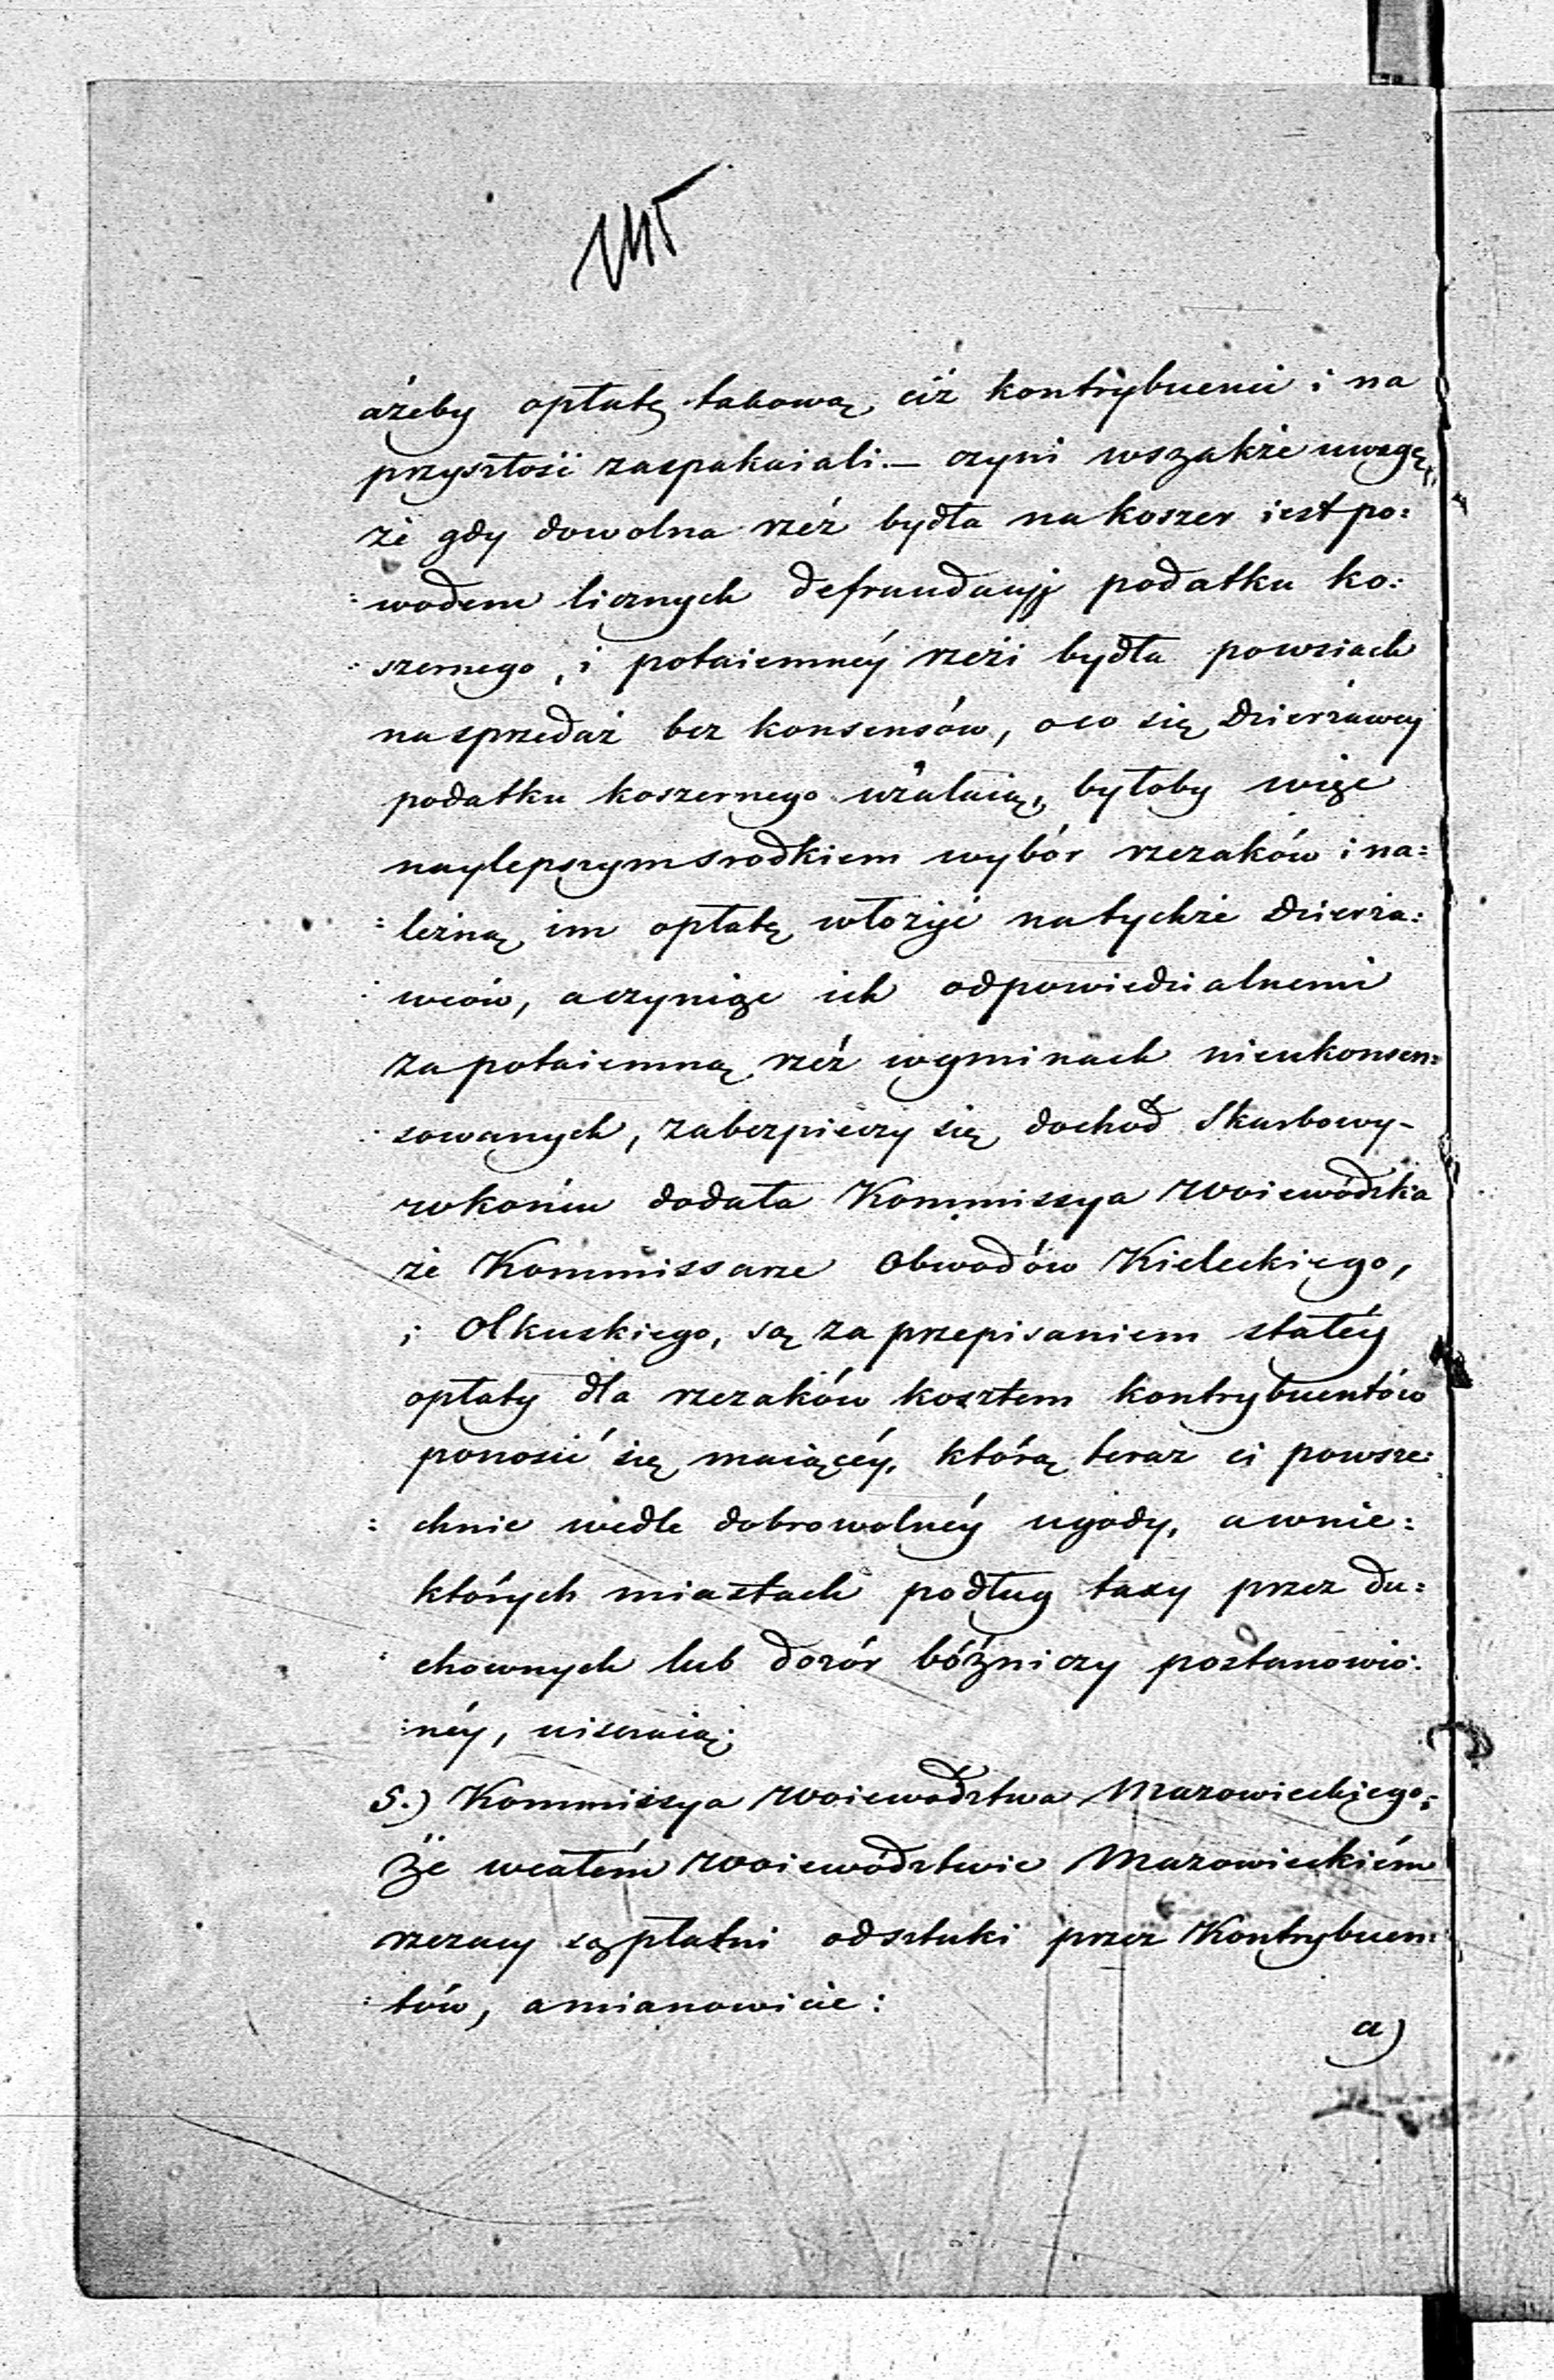 ażeby opłatę takową ciż kontrybuenci i na
przyszłość zaspakaiali. — czyni wszakże uwagę,
że gdy dowolna rzeź bydła na koszer iest po:
:wodem licznych defraudacyj podatku ko:
:szernego, i potaiemnéy rzezi bydła po wsiach
na sprzedaż bez konsensów, o co się Dzierżawcy
podatku koszernego użalaią, byłoby więc
naylepszym srodkiem wybór rzezaków i na:
:leżną im opłatę włożyć na tychże Dzierża:
:wców, a czyniąc ich odpowiedzialnemi
za potaiemną rzeź w gminach nieukonsen:
:sowanych, zabezpieczy się dochod Skarbowy –
w końcu dodała Kommissya Woiewódzka
że Kommissarze Obwodów Kieleckiego,
i Olkuskiego, są za przepisaniem stałéy
opłaty dla rzezaków kosztem kontrybuentów
ponosić się maiącéy, którą teraz ci powsze:
:chnie wedle dobrowolnéy ugody, a w nie:
których miastach podług taxy przez du:
:chownych lub dozór bóżniczy postanowio:
:néy, uiszczaią;
5.) Kommissya Woiewodztwa Mazowieckiego;
Że w całém Woiewództwie Mazowieckiém
rzezacy są płatni od sztuki przez Kontrybuen:
:tów, a mianowicie:
a)